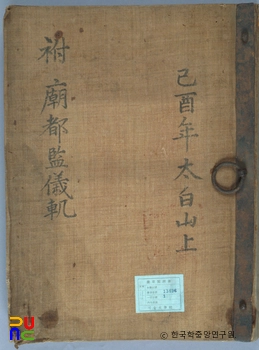 己酉年太白山上
祔廟都監儀軌
ⓒ 한국학중앙연구원